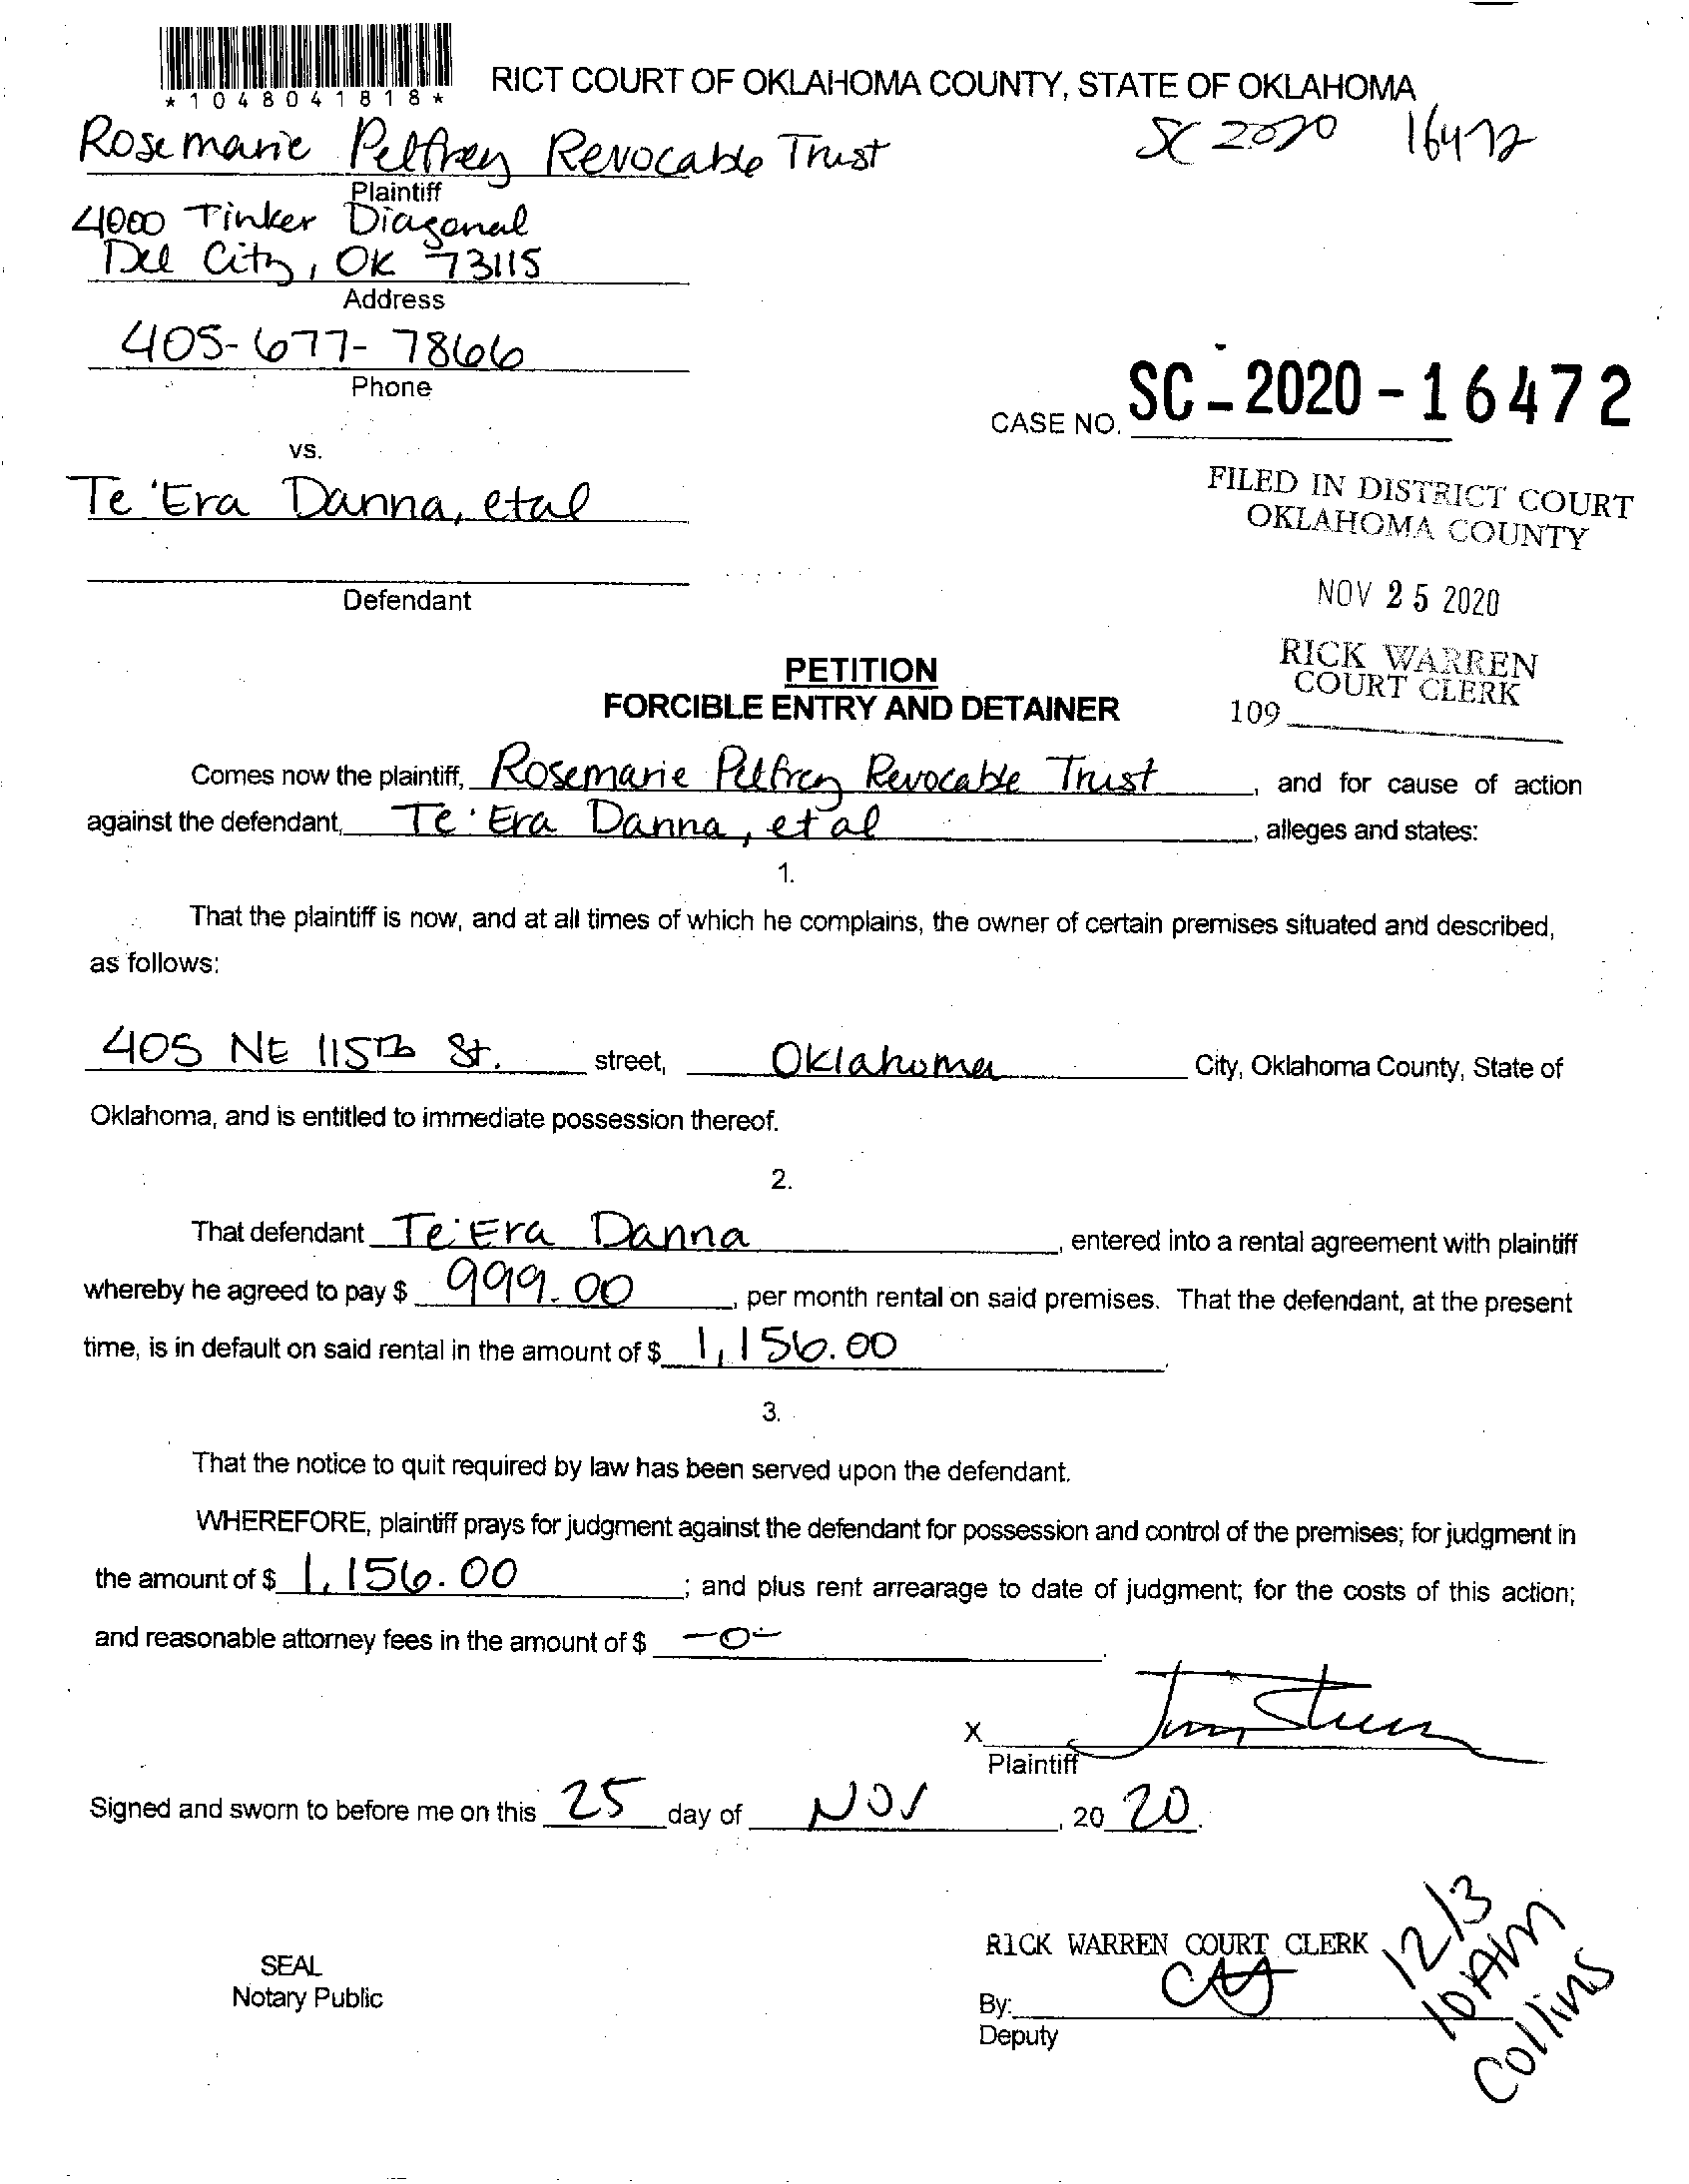 RICT COURT OF OKLAHOMA COUNTY, STATE OF OKLAHOMA
*1048041818*
SC 2020 16472
Rosemarie Pelfrey Revocable Trust
Plaintiff
4000 Tinker Diagonal
Del City, OK 73115
Address
405-677-7866
Phone
CASE NO. SC-2020-16472
vs.
Te'Era Danna, etal
Defendant
FILED IN DISTRICT COURT
OKLAHOMA COUNTY
NOV 25 2020
RICK WARREN
COURT CLERK
109
PETITION
FORCIBLE ENTRY AND DETAINER
Comes now the plaintiff, Rosemarie Pelfrey Revocable Trust, and for cause of action
against the defendant, Te'Era Danna, et al, alleges and states:
1.
That the plaintiff is now, and at all times of which he complains, the owner of certain premises situated and described,
as follows:
405 NE 115th St. street, Oklahoma City, Oklahoma County, State of
Oklahoma, and is entitled to immediate possession thereof.
2.
That defendant Te'Era Danna, entered into a rental agreement with plaintiff
whereby he agreed to pay $ 999.00, per month rental on said premises. That the defendant, at the present
time, is in default on said rental in the amount of $ 1,156.00.
3.
That the notice to quit required by law has been served upon the defendant.
WHEREFORE, plaintiff prays for judgment against the defendant for possession and control of the premises; for judgment in
the amount of $ 1,156.00; and plus rent arrearage to date of judgment; for the costs of this action;
and reasonable attorney fees in the amount of $ -0-.
X
Plaintiff
Signed and sworn to before me on this 25 day of Nov, 20 20.
RICK WARREN COURT CLERK
SEAL
Notary Public
By:
Deputy
12/3
10AM
Collins